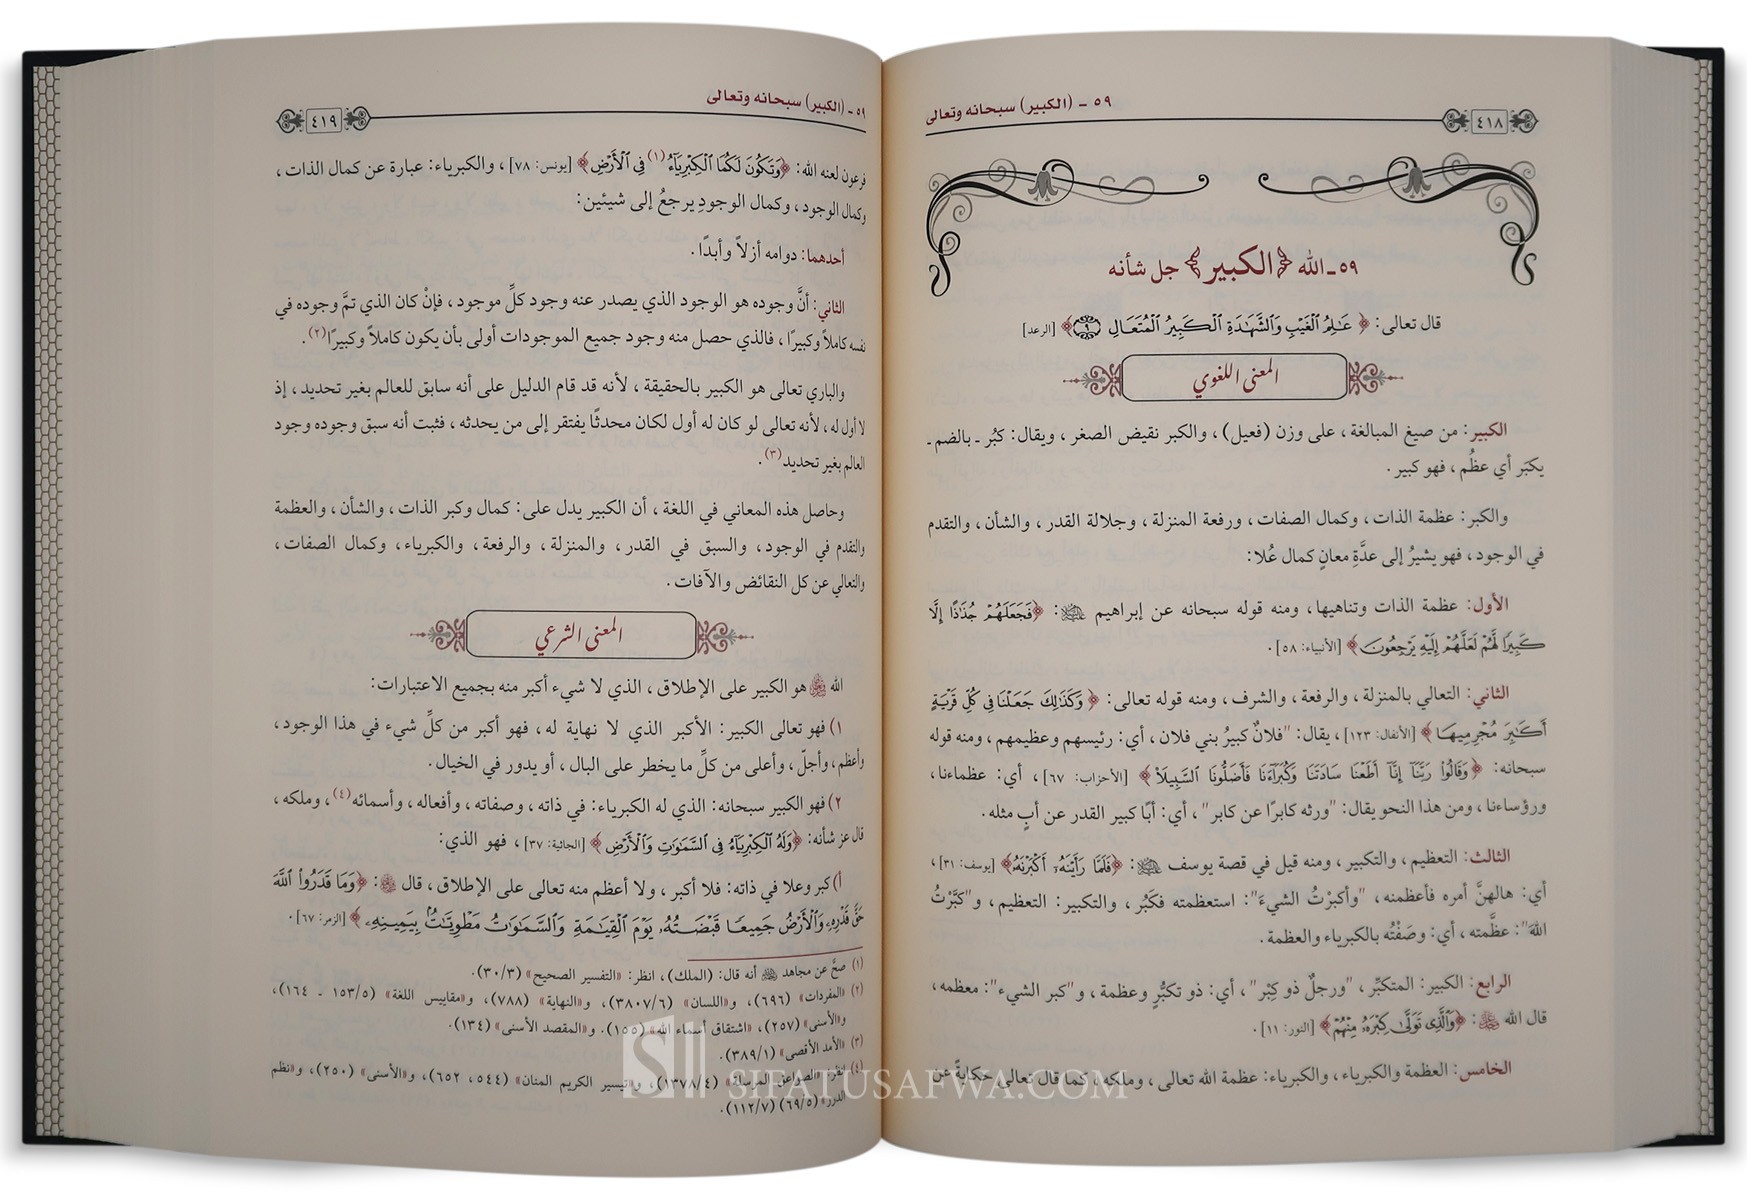 ٥٩ - (الكبير) سبحانه وتعالى
٤١٨
٥٩ ـ الله ﴿الكبير﴾ جل شأنه
قال تعالى: ﴿ عَـٰلِمُ ٱلۡغَيۡبِ وَٱلشَّهَـٰدَةِ ٱلۡكَبِيرُ ٱلۡمُتَعَالِ ٩﴾ [الرعد]
المعنى اللغوي
الكبير: من صيغ المبالغة، على وزن (فعيل)، والكبر نقيض الصغر، ويقال: كبُر ـ بالضم ـ
يكبَر أي عظُم، فهو كبير.
والكبر: عظمة الذات، وكمال الصفات، ورفعة المنزلة، وجلالة القدر، والشأن، والتقدم
في الوجود، فهو يشيرُ إلى عدَّةِ معانٍ كمال عُلا:
الأول: عظمة الذات وتناهيها، ومنه قوله سبحانه عن إبراهيم ﵇: ﴿فَجَعَلَهُمۡ جُذَٰذًا إِلَّا
كَبِيرٗا لَّهُمۡ لَعَلَّهُمۡ إِلَيۡهِ يَرۡجِعُونَ﴾ [الأنبياء: ٥٨].
الثاني: التعالي بالمنزلة، والرفعة، والشرف، ومنه قوله تعالى: ﴿ وَكَذَٰلِكَ جَعَلۡنَا فِي كُلِّ قَرۡيَةٍ
أَكَـٰبِرَ مُجۡرِمِيهَا ﴾ [الأنفال: ١٢٣]، يقال: "فلانٌ كبيرُ بني فلان، أي: رئيسهم وعظيمهم، ومنه قوله
سبحانه: ﴿ وَقَالُواْ رَبَّنَآ إِنَّآ أَطَعۡنَا سَادَتَنَا وَكُبَرَآءَنَا فَأَضَلُّونَا ٱلسَّبِيلَا۠ ﴾ [الأحزاب: ٦٧]، أي: عظماءنا،
ورؤساءنا، ومن هذا النحو يقال: "ورثه كابرًا عن كابر"، أي: أبًا كبير القدر عن أبٍ مثله.
الثالث: التعظيم، والتكبير، ومنه قيل في قصة يوسف ﵇: ﴿فَلَمَّا رَأَيۡنَهُۥٓ أَكۡبَرۡنَهُۥ﴾ [يوسف: ٣١]،
أي: هالهنَّ أمره فأعظمنه، "وأكبرْتُ الشيءَ": استعظمته فكَبُر، والتكبير: التعظيم، و"كبَّرْتُ
اللهَ": عظَّمته، أي: وصَفْتُه بالكبرياء والعظمة.
الرابع: الكبير: المتكبِّر، "ورجلٌ ذو كِبْر"، أي: ذو تكبُّرٍ وعظمة، و"كبر الشيء": معظمه،
قال الله ﷻ: ﴿وَٱلَّذِي تَوَلَّىٰ كِبۡرَهُۥ مِنۡهُمۡ﴾ [النور: ١١].
الخامس: العظمة والكبرياء، والكبرياء: عظمة الله تعالى، وملكه، كما قال تعالى حكايةً عن
٥٩ - (الكبير) سبحانه وتعالى
٤١٩
فرعون لعنه الله: ﴿وَتَكُونَ لَكُمَا ٱلۡكِبۡرِيَآءُ(١) فِي ٱلۡأَرۡضِ﴾ [يونس: ٧٨]، والكبرياء: عبارة عن كمال الذات،
وكمال الوجود، وكمال الوجودِ يرجعُ إلى شيئين:
أحدهما: دوامه أزلاً وأبدًا.
الثاني: أنَّ وجوده هو الوجود الذي يصدر عنه وجود كلِّ موجود، فإنْ كان الذي تمَّ وجوده في
نفسه كاملاً وكبيرًا، فالذي حصل منه وجود جميع الموجودات أولى بأن يكون كاملاً وكبيرًا(٢).
والباري تعالى هو الكبير بالحقيقة، لأنه قد قام الدليل على أنه سابق للعالم بغير تحديد، إذ
لا أول له، لأنه تعالى لو كان له أول لكان محدثًا يفتقر إلى من يحدثه، فثبت أنه سبق وجوده وجود
العالم بغير تحديد(٣).
وحاصل هذه المعاني في اللغة، أن الكبير يدل على: كمال وكبر الذات، والشأن، والعظمة
والتقدم في الوجود، والسبق في القدر، والمنزلة، والرفعة، والكبرياء، وكمال الصفات،
والتعالي عن كل النقائض والآفات.
المعنى الشرعي
الله ﷻ هو الكبير على الإطلاق، الذي لا شيء أكبر منه بجميع الاعتبارات:
١) فهو تعالى الكبير: الأكبر الذي لا نهاية له، فهو أكبر من كلِّ شيء في هذا الوجود،
وأعظم، وأجلّ، وأعلى من كلِّ ما يخطر على البال، أو يدور في الخيال.
٢) فهو الكبير سبحانه: الذي له الكبرياء: في ذاته، وصفاته، وأفعاله، وأسمائه(٤)، وملكه،
قال عز شأنه: ﴿وَلَهُ ٱلۡكِبۡرِيَآءُ فِي ٱلسَّمَـٰوَٰتِ وَٱلۡأَرۡضِ ﴾ [الجاثية: ٣٧]، فهو الذي:
أ) كبر وعلا في ذاته: فلا أكبر، ولا أعظم منه تعالى على الإطلاق، قال ﷻ: ﴿وَمَا قَدَرُواْ ٱللَّهَ
حَقَّ قَدۡرِهِۦ وَٱلۡأَرۡضُ جَمِيعٗا قَبۡضَتُهُۥ يَوۡمَ ٱلۡقِيَـٰمَةِ وَٱلسَّمَـٰوَٰتُ مَطۡوِيَّـٰتُۢ بِيَمِينِهِۦ ﴾ [الزمر: ٦٧].
(١) صحَّ عن مجاهد أنه قال: (الملك)، انظر: «التفسير الصحيح» (٣/ ٣٠).
(٢) «المفردات» (٦٩٦)، و«اللسان» (٦/ ٣٨٠٧)، و«النهاية» (٧٨٨)، و«مقاييس اللغة» (٥/ ١٥٣ - ١٦٤)،
و«الأسنى» (٢٥٧)، «اشتقاق أسماء الله» (١٥٥). و«المقصد الأسنى» (١٣٤).
(٣) «الأمد الأقصى» (١/ ٣٨٩).
(٤) انظر: «الصواعق المرسلة» (٤/ ١٣٧٨)، و«تيسير الكريم المنان» (٥٤٤، ٦٥٢)، و«الأسنى» (٢٥٠)، و«نظم
الدرر» (٥/ ٦٩) (٧/ ١١٢).
SIFATUSAFWA.COM